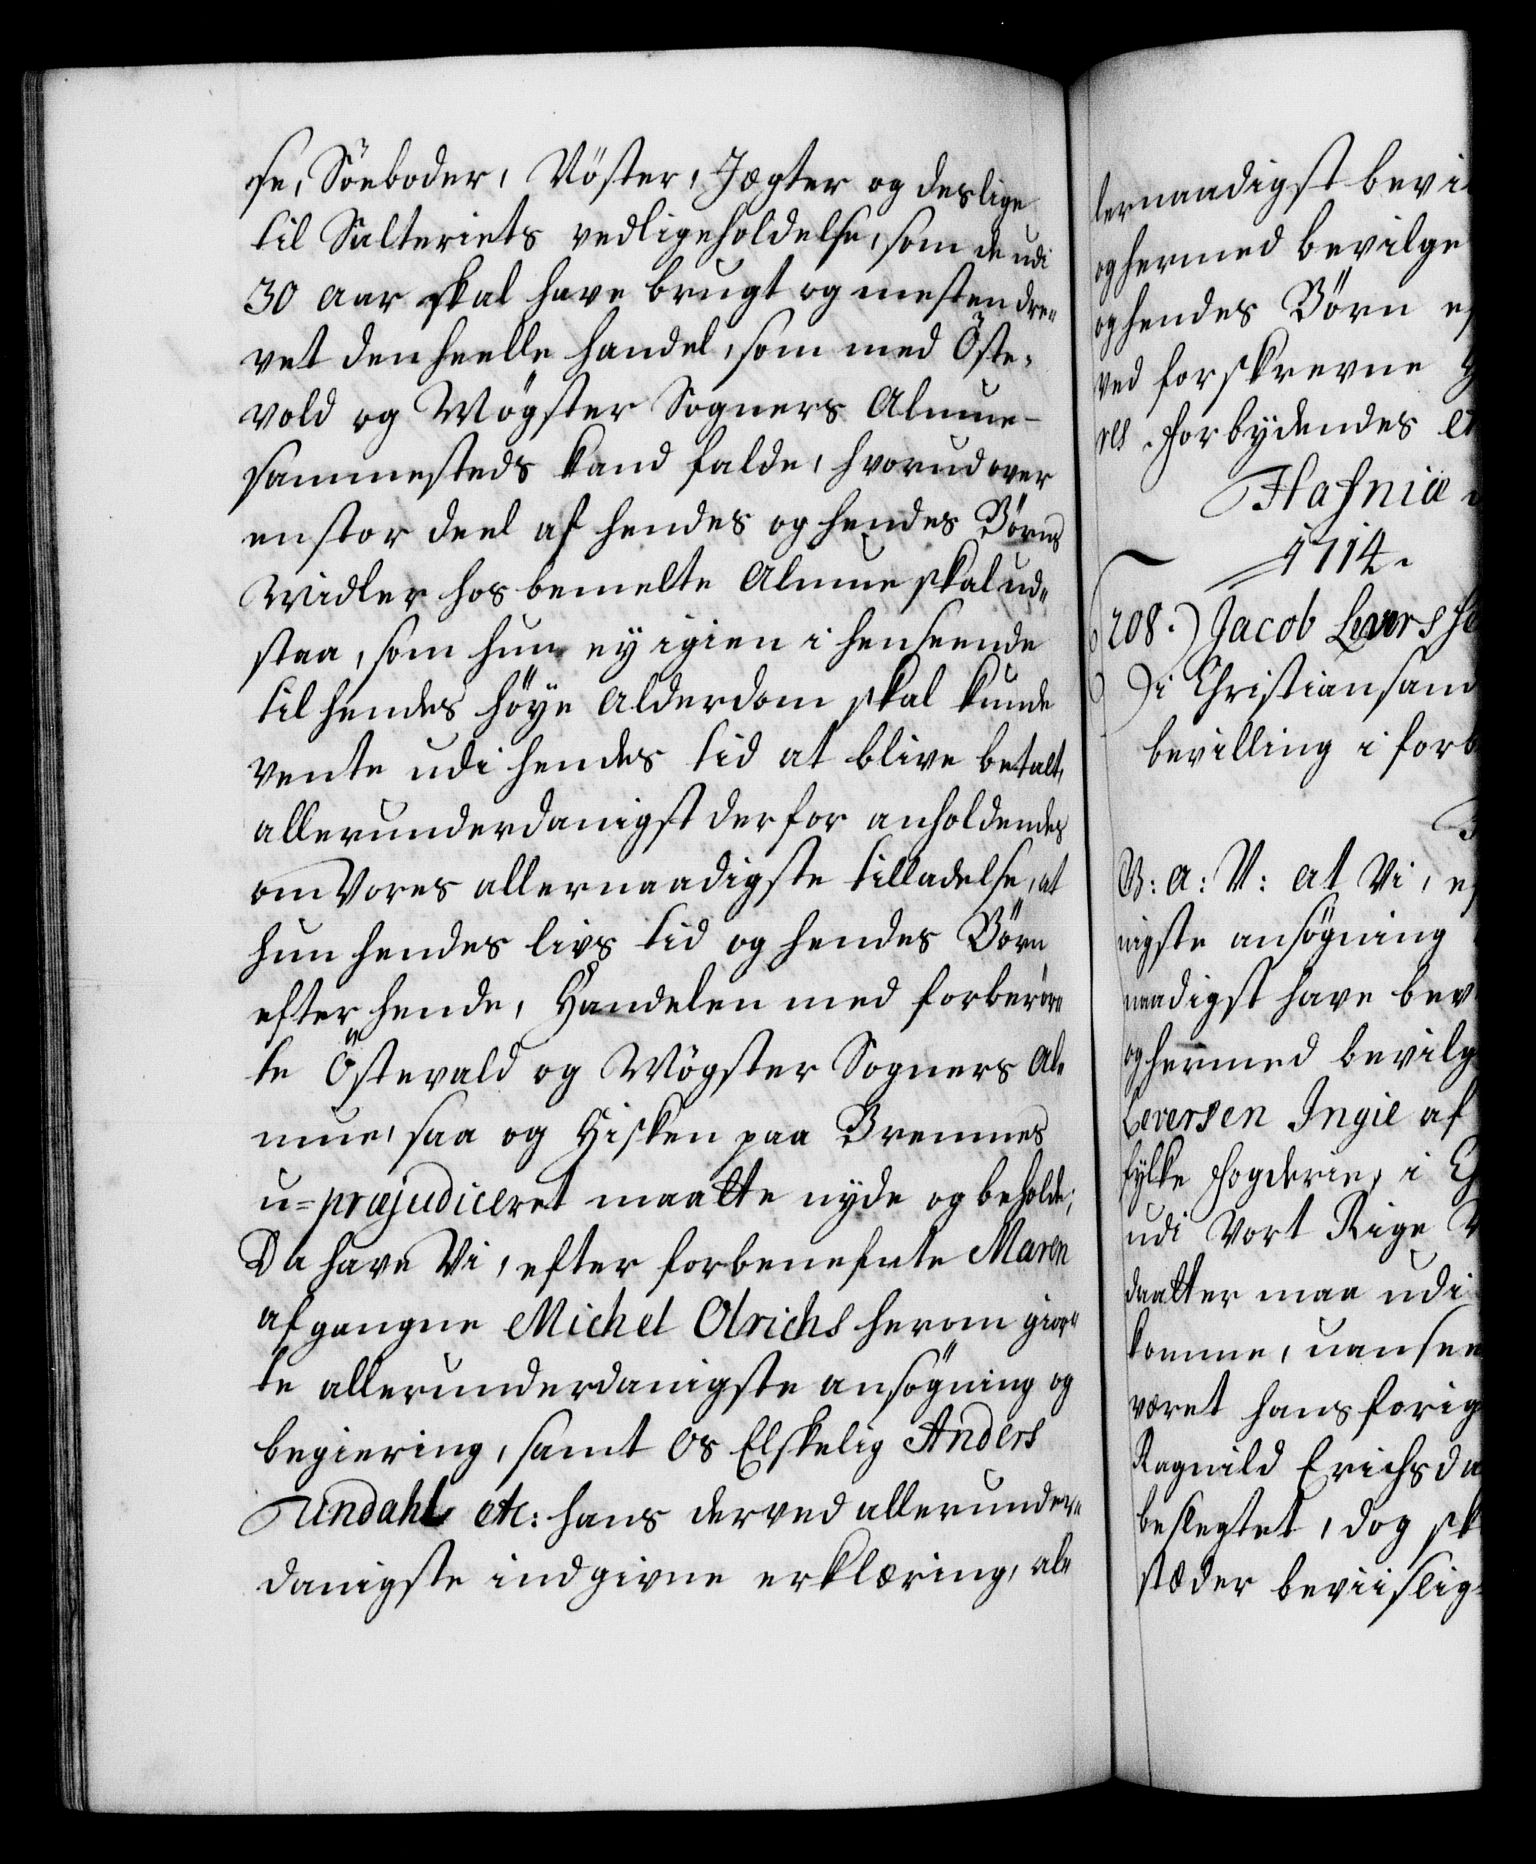 se, Söeboder, Nöster, Jægter og deslige
til Salteriets vedligeholdelse, som de udi
30 aar skal have brugt og mesten dre„
vet den heelle handel, som med Öste„
vold og Møgster Sogners Almue
sammesteds kand falde, hvorudover
en stor deel af hendes og hendes Børns
Midler hos bemelte Almue skal ud„
staa, som hun ey igien i henseende
til hendes höye Alderdom skal kunde
vente udi hendes tid at blive betalt,
allerunderdanigst derfor anholdendes
om Vores allernaadigste tilladelse, at
hun hendes livs tid og hendes Børn
efter hende, Handelen med forberör„
te Östevald og Møgster Sogners Al„
mue, saa og Hisken paa Bremnes
u=præjudiceret maatte nyde og beholde;
Da have Vi, efter forbenefnte Maren
afgangne Michel Olrichs herom gior„
te allerunderdanigste ansögning og
begiering, samt Os Elskelig Anders
Undahl etc: hans derved allerunder„
danigste indgivne erklæring, al„
lernaadigst bevi
og hermed bevilge
og hendes Børn ef
ved forskrevne H
res. Forbydendes et
Hafniæ
1714.
208.) Jacob Levers
i Christiansand
bevilling i forb
G: A: V: at Vi, ef
nigste ansögning
naadigst have bev
og hermed bevilg
Leversen Ingie af
fylke Fogderie, i
udi Vort Rige N
daatter maa udi
komme, uanseet
været hans forig
Ragnild Erichsda
beslegtet, dog sk
stæder beviislig